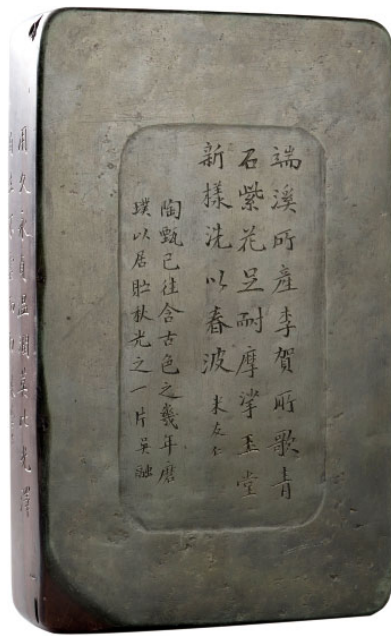 端溪所產李賀所歌青
石紫花足耐摩挲玉堂
新樣洗以春波 米友仁
陶甄已往含古色之幾年磨
璞以居貯秋光之一片 吳融
用久永貞溫潤莫比光澤